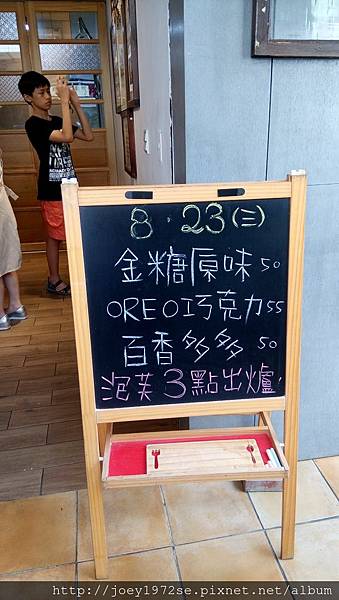 8.23(三)
金糖原味50
OREO巧克力55
百香多多50
泡芙3點出爐
http://joey1972se.pixnet.net/album